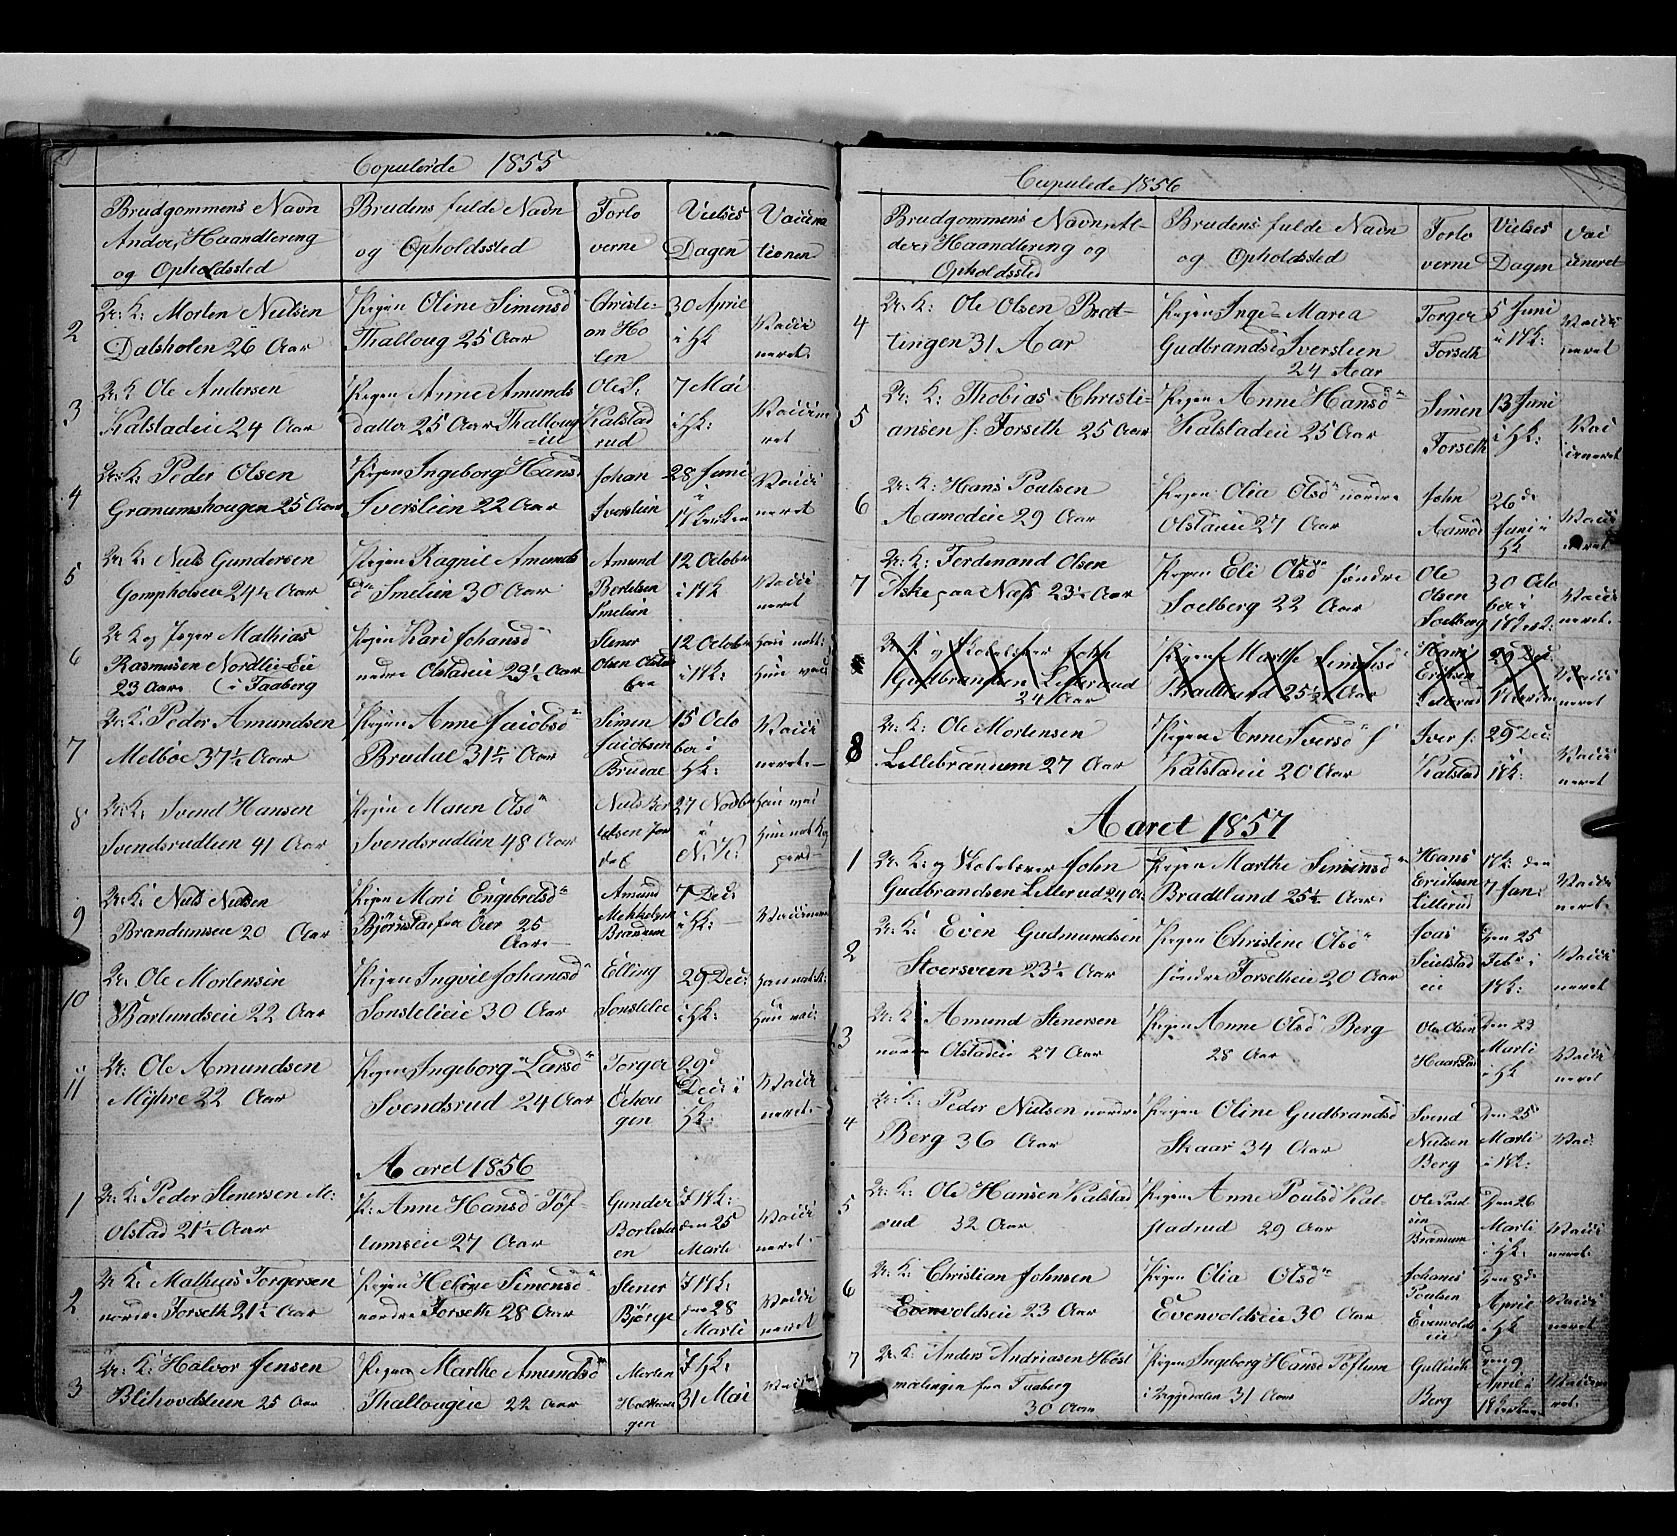 Copulerede 1855
Brudgommens Navn
Alder, Haandtering
og Opholdssted
Brudens fulde Navn
og Opholdssted
Forlo
verne
Vielses
Dagen
Vaccina
tionen
2
U: K: Morten Nielsen
Dalsholen 26 Aar
Pigen Oline Simensd
Thalloug 25 Aar
Christi-
an Ho
len
30 April
i HK
Vacci
neret
3
U: K Ole Andersen
Kalstadeie 24 Aar
Pigen Anne Amunds
datter 25 Aar Thalloug
=eie
Ole P.
Kalstad
rud
7 Mai
i HK:
Vaccine
ret
4
U: K: Peder Olsen
Granumshougen 25 Aar
Pigen Ingeborg Hansd
Iverslien 22 Aar
Johan
Iverslien
28 Juni
i
Vacci
neret
5
U: K: Niels Gundersen
Gompholseie 24½ Aar
Pigen Ragnil Amunds
dn Smeiien 30 Aar
Amund
Bertelsen
Smeiien
12 October
i HK
Vacci
neret
6
U: K og Jæger Mathias
Rasmusen Nordlie Eie
23 Aar i Faaberg
Pigen Kari Johansd
nedre Olstadeie 29½ Aar
Stener
Olsen Olstad
12 October
i HK:
7
U: K: Peder Amundsen
Melbøe 37½ Aar
Pigen Anne Jacobsd
Brudal 31½ Aar
Simen
Jacobsen
Brudal
15 Octo
ber i
HK:
Vacci
neret
8
U: K: Svend Hansen
Svendsrudlien 41 Aar
Pigen Maren Olsd
Svendsrudlien 48 Aar
Niels Ber
telsen Jor
det
27 Novbr
i
N. K:
9
U: K: Niels Nielsen
Brandumseie 20 Aar
Pigen Mari Engebretsd
Bjørnstad fra Öier 25
Aar
Amund
Mekkelsen
Brænum
7 Dec:
i HK:
Vaccineret
10
U: Ole Mortensen
Barlundseie 22 Aar
Pigen Ingvil Johannesd
Sonstelieie 30 Aar
Elling
Sonstelie
29 Dec:
i HK:
11
U: Ole Amundsen
Myhre 22 Aar
Pigen Ingeborg Larsd
Svendsrud 24 Aar
Torger
29d
Dec: i
HK:
Vacci
neret
Aaret 1856
1
U: K: Peder Stenersen
Olstad 21½ Aar
P: Anne Hansd Töf-
tumseie 27 Aar
Gunder
den 25
Marti
Vacci
neret
2
U: K: Mathias Torgersen
nordre Forseth 21½ Aar
Pigen Helene Simensd
nordre Forseth 28 Aar
Stener
Bjørge
den 28
Marti
Vacci
neret
3
U: K: Halvor Jensen
Blihovdslien 25 Aar
Pigen Marthe Amundsd
Thallougeie 22 Aar
Morten
gen
I HK:
31 Mai
Copulede 1856
Brudgommens Navn Al-
der, Haandtering og
Opholdssted
Brudens fulde Navn
og Opholdssted
Forlo
verne
Vielses
Dagen
Vac
cineret
4
U: K: Ole Olsen Bræt-
tingen 31 Aar
Pigen Inge Maria
Gudbrandsd Iverslien
24 Aar
Torger
Forseth
5 Juni
i HK:
Vacci
neret
5
U: K: Thobias Christi-
ansen s: Forseth 25 Aar
Pigen Anne Hansd
Kalstadeie 25 Aar
Simen
Forseth
13 Juni
i HK:
Vac
cineret
6
U: K: Hans Poulsen
Aamodeie 29 Aar
Pigen Olia Olsd nordre
Olstadeie 27 Aar
John
Aamod
26de
Juni i
HK
Vacci
neret
7
U: K: Ferdinand Olsen
Aske paa Næss 23½ Aar
Pigen Eli Olsd søndre
Soelberg 22 Aar
Ole
Olsen
Soelberg
30 Octo
ber i
Vacci
neret
U: K og Skolelærer John
Gudbrandsen Lillerud
24 Aar
Pigen Marthe Simensd
Bradtlund 25½ Aar
Hans
Eriksen
Lillerud
29 Dec
neret
8
U: K: Ole Mortensen
Lillebrandum 27 Aar
Pigen Anne Iversd s
Kalstadeie 20 Aar
Iver s:
Kalstad
29 Dec:
i
HK:
Vacci
neret
Aaret 1857
1
U: K: og Skolelærer John
Gudbrandsen Lillerud 24 A.
Pigen Marthe Simensd
Bradtlund 25½ Aar
Hans
Eriksen
Lillerud
HK: den
7 Jan:
Vacci
neret
2
U: K: Even Gudmundsen
Stoersveen 23½ Aar
Pigen Christine Olsd
søndre Forsetheie 20 Aar
Joas
Seielstad
eie
Den 25
Feb: i
HK:
Vacci
neret
3
U: K: Amund Stenersen
nordre Olstadeie 27 Aar
Pigen Anne Olsd Berg
28 Aar
Ole Olsen
Haarstad
den 23
Marti
i HK
Vacci
neret
4
U: K: Peder Nielsen nordre
Berg 36 Aar
Pigen Oline Gudbrandsd
Skaar 34 Aar
Svend
Nielsen
Berg
Den 25
Marti
i HK:
Vac
5
U: K: Ole Hansen Kalstad
rud 32 Aar
Pigen Anne Poulsd Kal-
stadrud 29 Aar
Ole Poul
sen
Brænum
Den 26
Marti
i HK:
Vacci
neret
6
U: K: Christian Johnsen
Evenvoldseie 23 Aar
Pigen Olia Olsd
Evenvoldseie 30 Aar
Johanes
Poulsen
Evenvolds
eie
Den 8de
April
i HK
Vacci
neret
7
U: K: Anders Andriasen Höst
mælingen fra Faaberg
30 Aar
Pigen Ingeborg Hansd Töftum
i Væggedalen 31 Aar
Gullich
Berg
den 9
April i